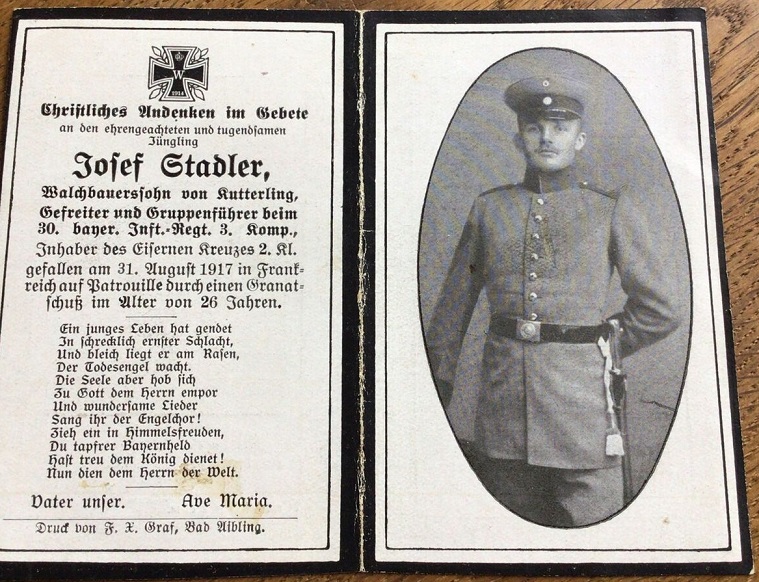 W
1914
Christliches Andenken im Gebete
an den ehrengeachteten und tugendsamen
Jüngling
Josef Stadler,
Walchbauerssohn von Kutterling,
Gefreiter und Gruppenführer beim
30. bayer. Inft.-Regt. 3. Komp.,
Inhaber des Eisernen Kreuzes 2. Kl.
gefallen am 31. August 1917 in Frank-
reich auf Patrouille durch einen Granat-
schuß im Alter von 26 Jahren.
Ein junges Leben hat gendet
In schrecklich ernster Schlacht,
Und bleich liegt er am Rasen,
Der Todesengel wacht.
Die Seele aber hob sich
Zu Gott dem Herrn empor
Und wundersame Lieder
Sang ihr der Engelchor!
Zieh ein in Himmelsfreuden,
Du tapfrer Bayernheld
Hast treu dem König dienet!
Nun dien dem Herrn der Welt.
Vater unser. Ave Maria.
Druck von F. X. Graf, Bad Aibling.